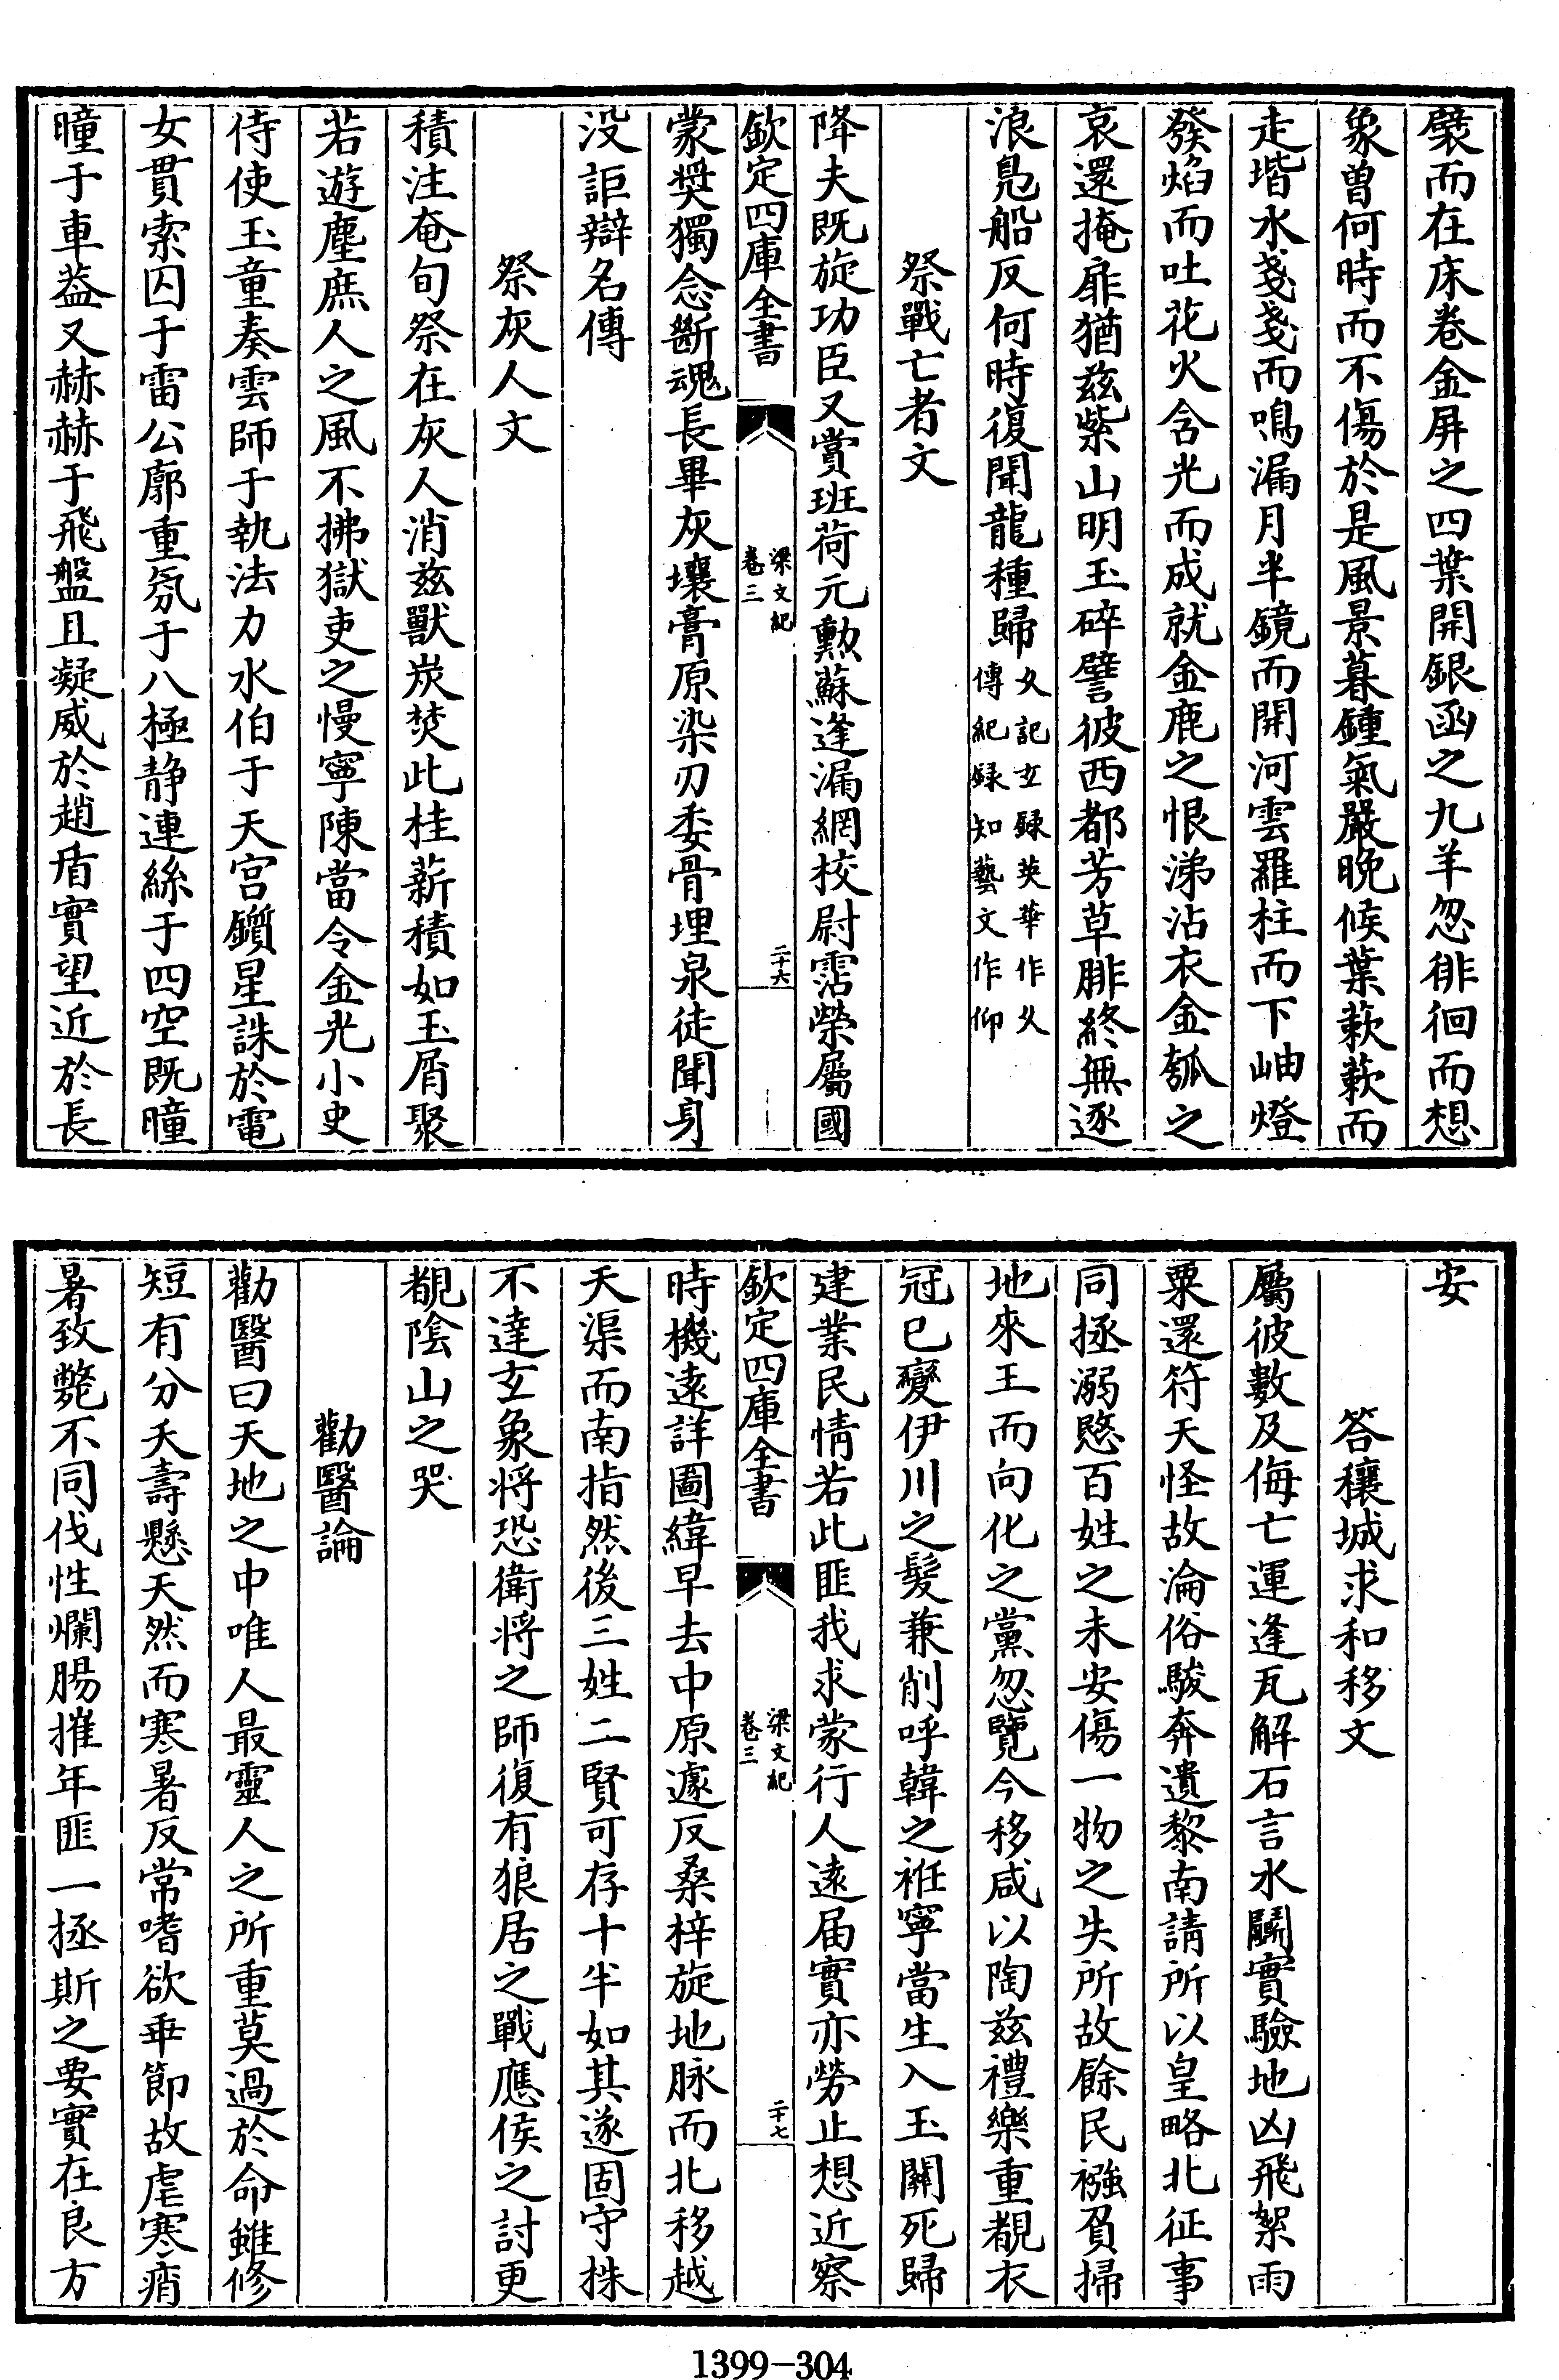 襞而在床卷金屏之四葉開銀函之九羊忽徘徊而想
象曾何時而不傷於是風景暮鍾氣嚴晚候葉蔌蔌而
走堦水戔戔而鳴漏月半鏡而開河雲羅柱而下岫燈
發焰而吐花火含光而成就金鹿之恨涕沾衣金瓠之
哀還掩扉猶兹紫山明玉碎譬彼西都芳草腓終無逐
浪鳬船反何時復聞龍種歸
女記玄録英華作乆
傳紀録知藝文作仰
祭戰亡者文
降夫既旋功臣又賞班荷元勲蘇逢漏網校尉霑榮屬國
欽定四庫全書
梁文紀
卷三
二十六
蒙奨獨念斷魂長畢灰壤膏原染刃委骨埋泉徒聞身
没詎辯名傳
祭灰人文
積注奄旬祭在灰人消兹獸炭焚此桂薪積如玉屑聚
若遊塵庶人之風不拂獄吏之慢寧陳當令金光小史
侍使玉童奏雲師于執法力水伯于天宫鑕星誅於電
女貫索囚于雷公廓重氛于八極静連絲于四空既曈
曈于車葢又赫赫于飛盤且凝威於趙盾實望近於長
安
答穰城求和移文
屬彼數及侮亡運逢瓦解石言水鬬實驗地凶飛絮雨
粟還符天怪故淪俗駿奔遺黎南請所以皇略北征事
同拯溺愍百姓之未安傷一物之失所故餘民襁負掃
地來王而向化之黨忽覽今移咸以陶兹禮樂重覩衣
冠已變伊川之髮兼削呼韓之袵寧當生入玉關死歸
建業民情若此匪我求蒙行人遠届實亦勞止想近察
欽定四庫全書
梁文紀
卷三
二十七
時機遠詳圖緯早去中原遽反桑梓旋地脉而北移越
天渠而南指然後三姓二賢可存十半如其遂固守株
不達玄象將恐衛將之師復有狼居之戰應侯之討更
覩陰山之哭
勸醫論
勸醫曰天地之中唯人最靈人之所重莫過於命雖修
短有分夭壽懸天然而寒暑反常嗜欲乖節故虐寒痟
暑致斃不同伐性爛腸摧年匪一拯斯之要實在良方
1399-304